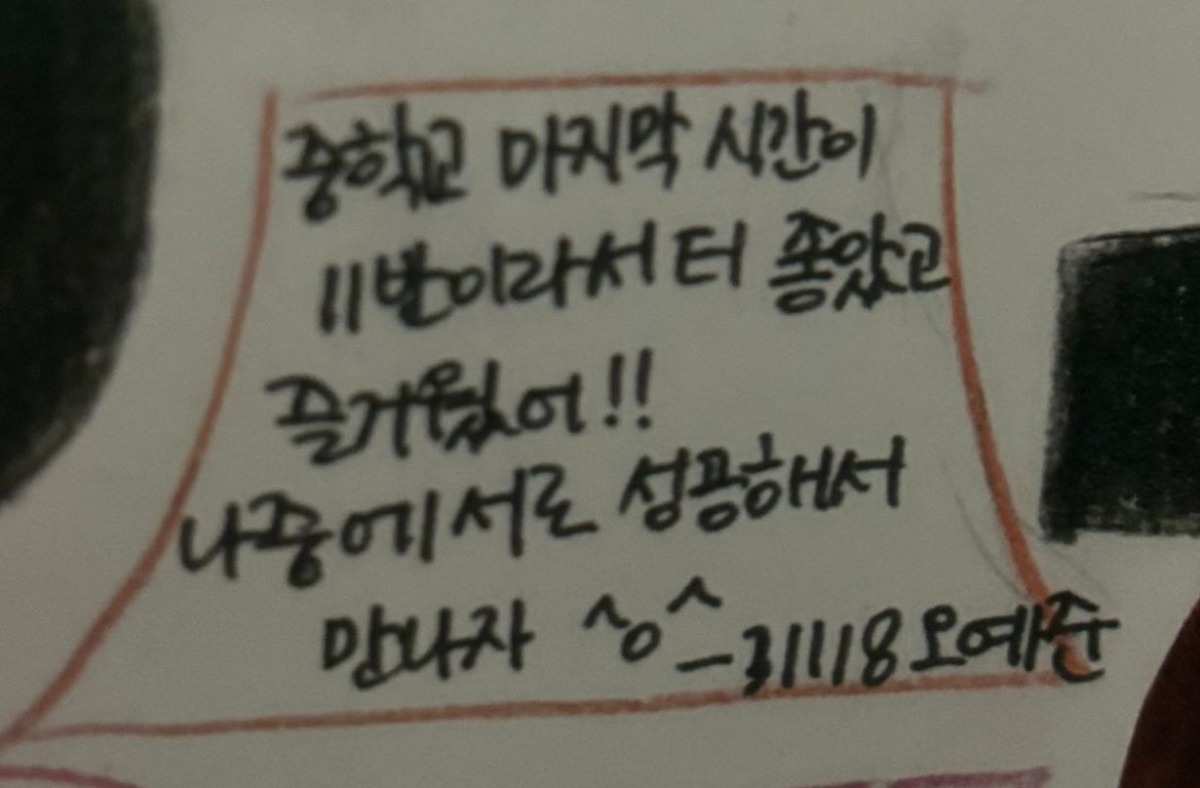 중학교 마지막 시간이
11반이라서 터 좋았고
즐거웠어!!
나중에 서로 성공해서
만나자 ^o^ -31118 오예준